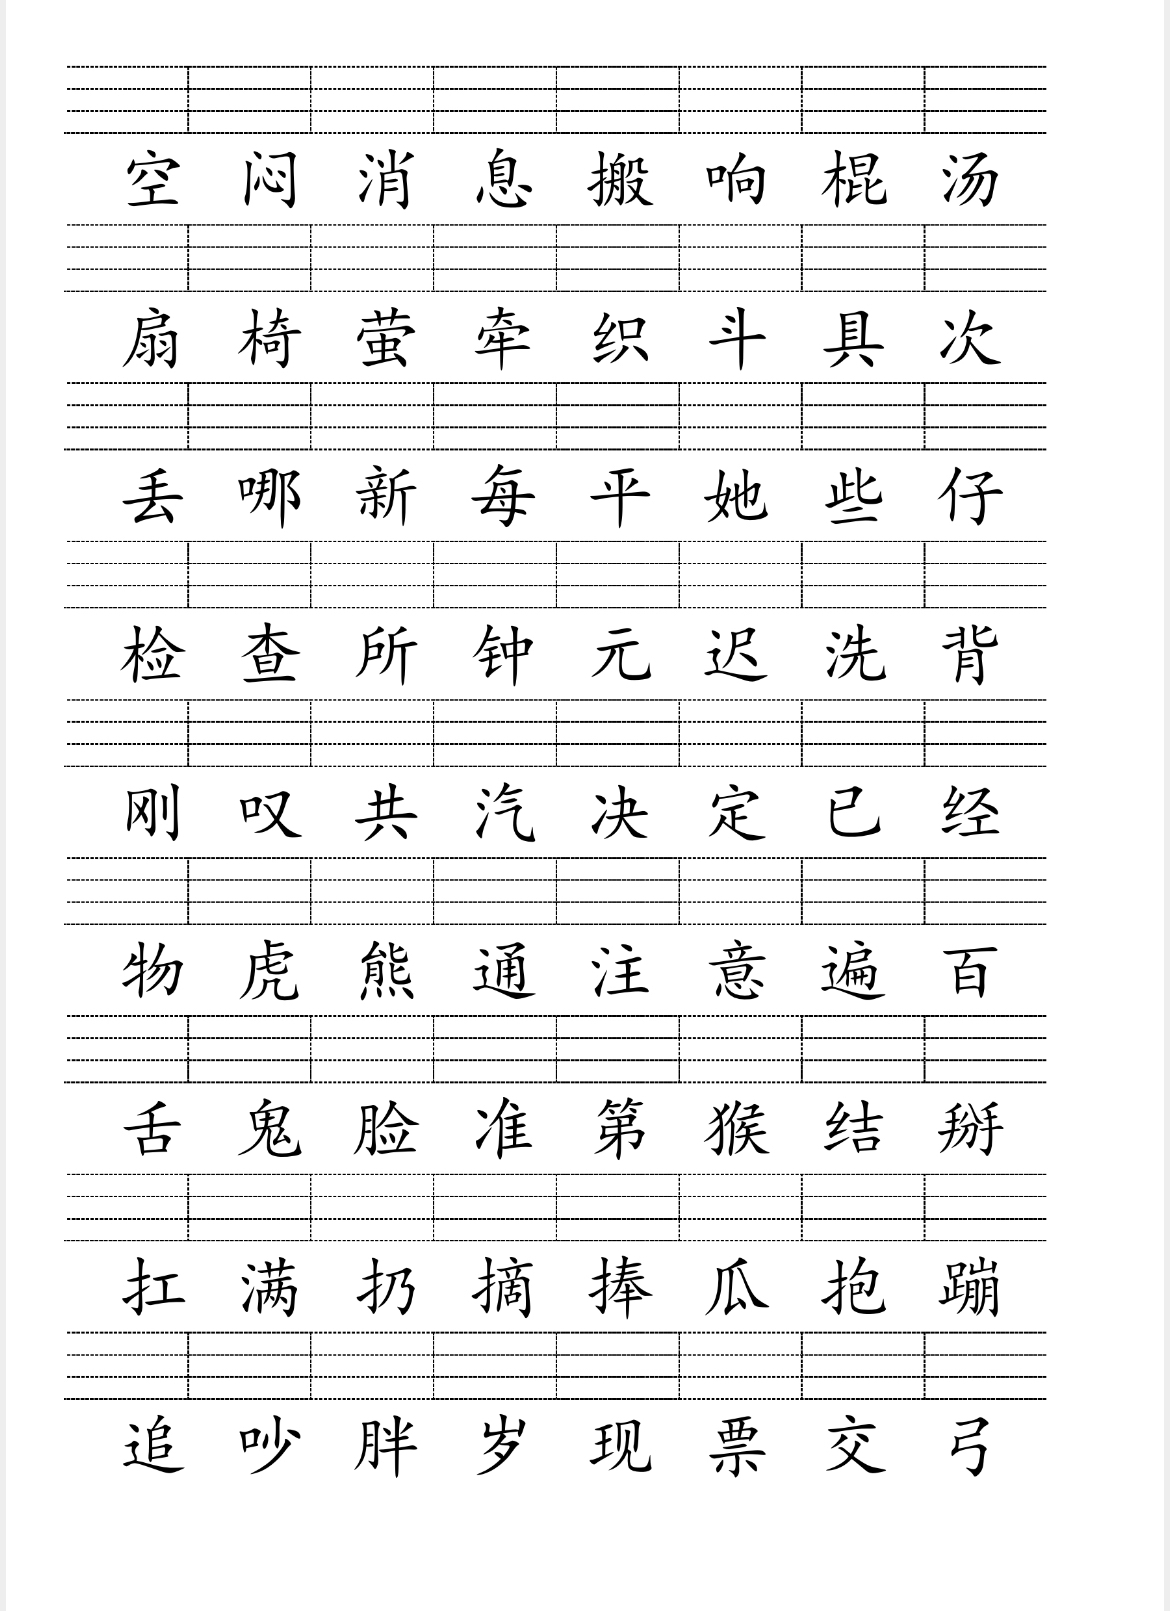 空 闷 消 息 搬 响 棍 汤
扇 椅 萤 牵 织 斗 具 次
丢 哪 新 每 平 她 些 仔
检 查 所 钟 元 迟 洗 背
刚 叹 共 汽 决 定 已 经
物 虎 熊 通 注 意 遍 百
舌 鬼 脸 准 第 猴 结 掰
扛 满 扔 摘 捧 瓜 抱 蹦
追 吵 胖 岁 现 票 交 弓